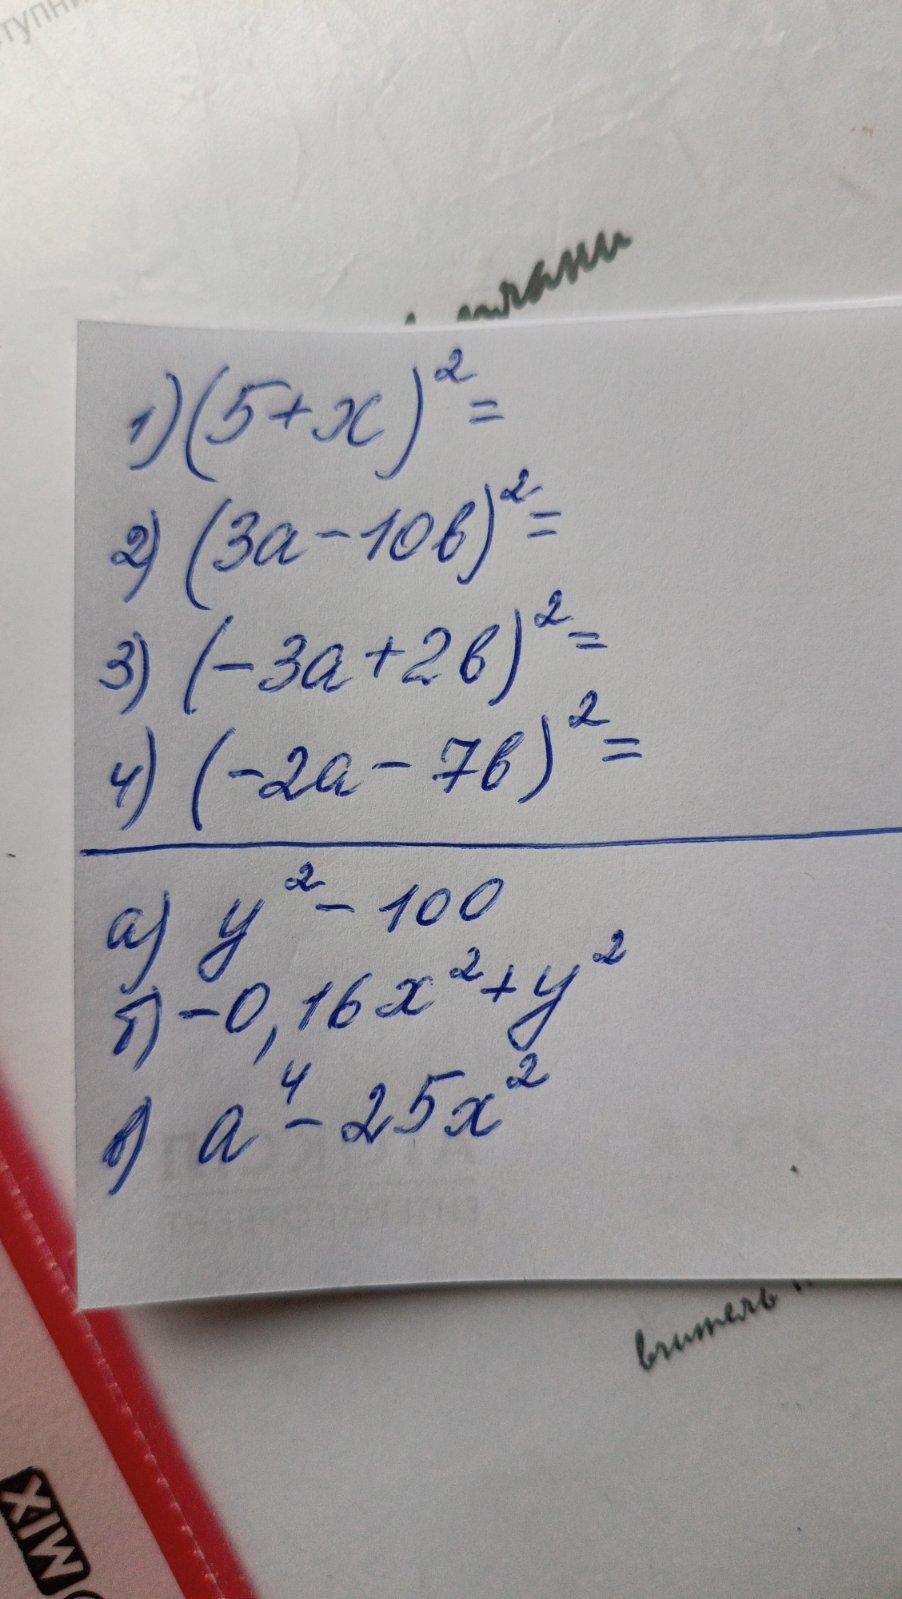 1) (5+x)²=
2) (3a-10в)²=
3) (-3a+2в)²=
4) (-2a-7в)²=
а) y²-100
б) -0,16x²+y²
в) a⁴-25x²
вчитель
MIX